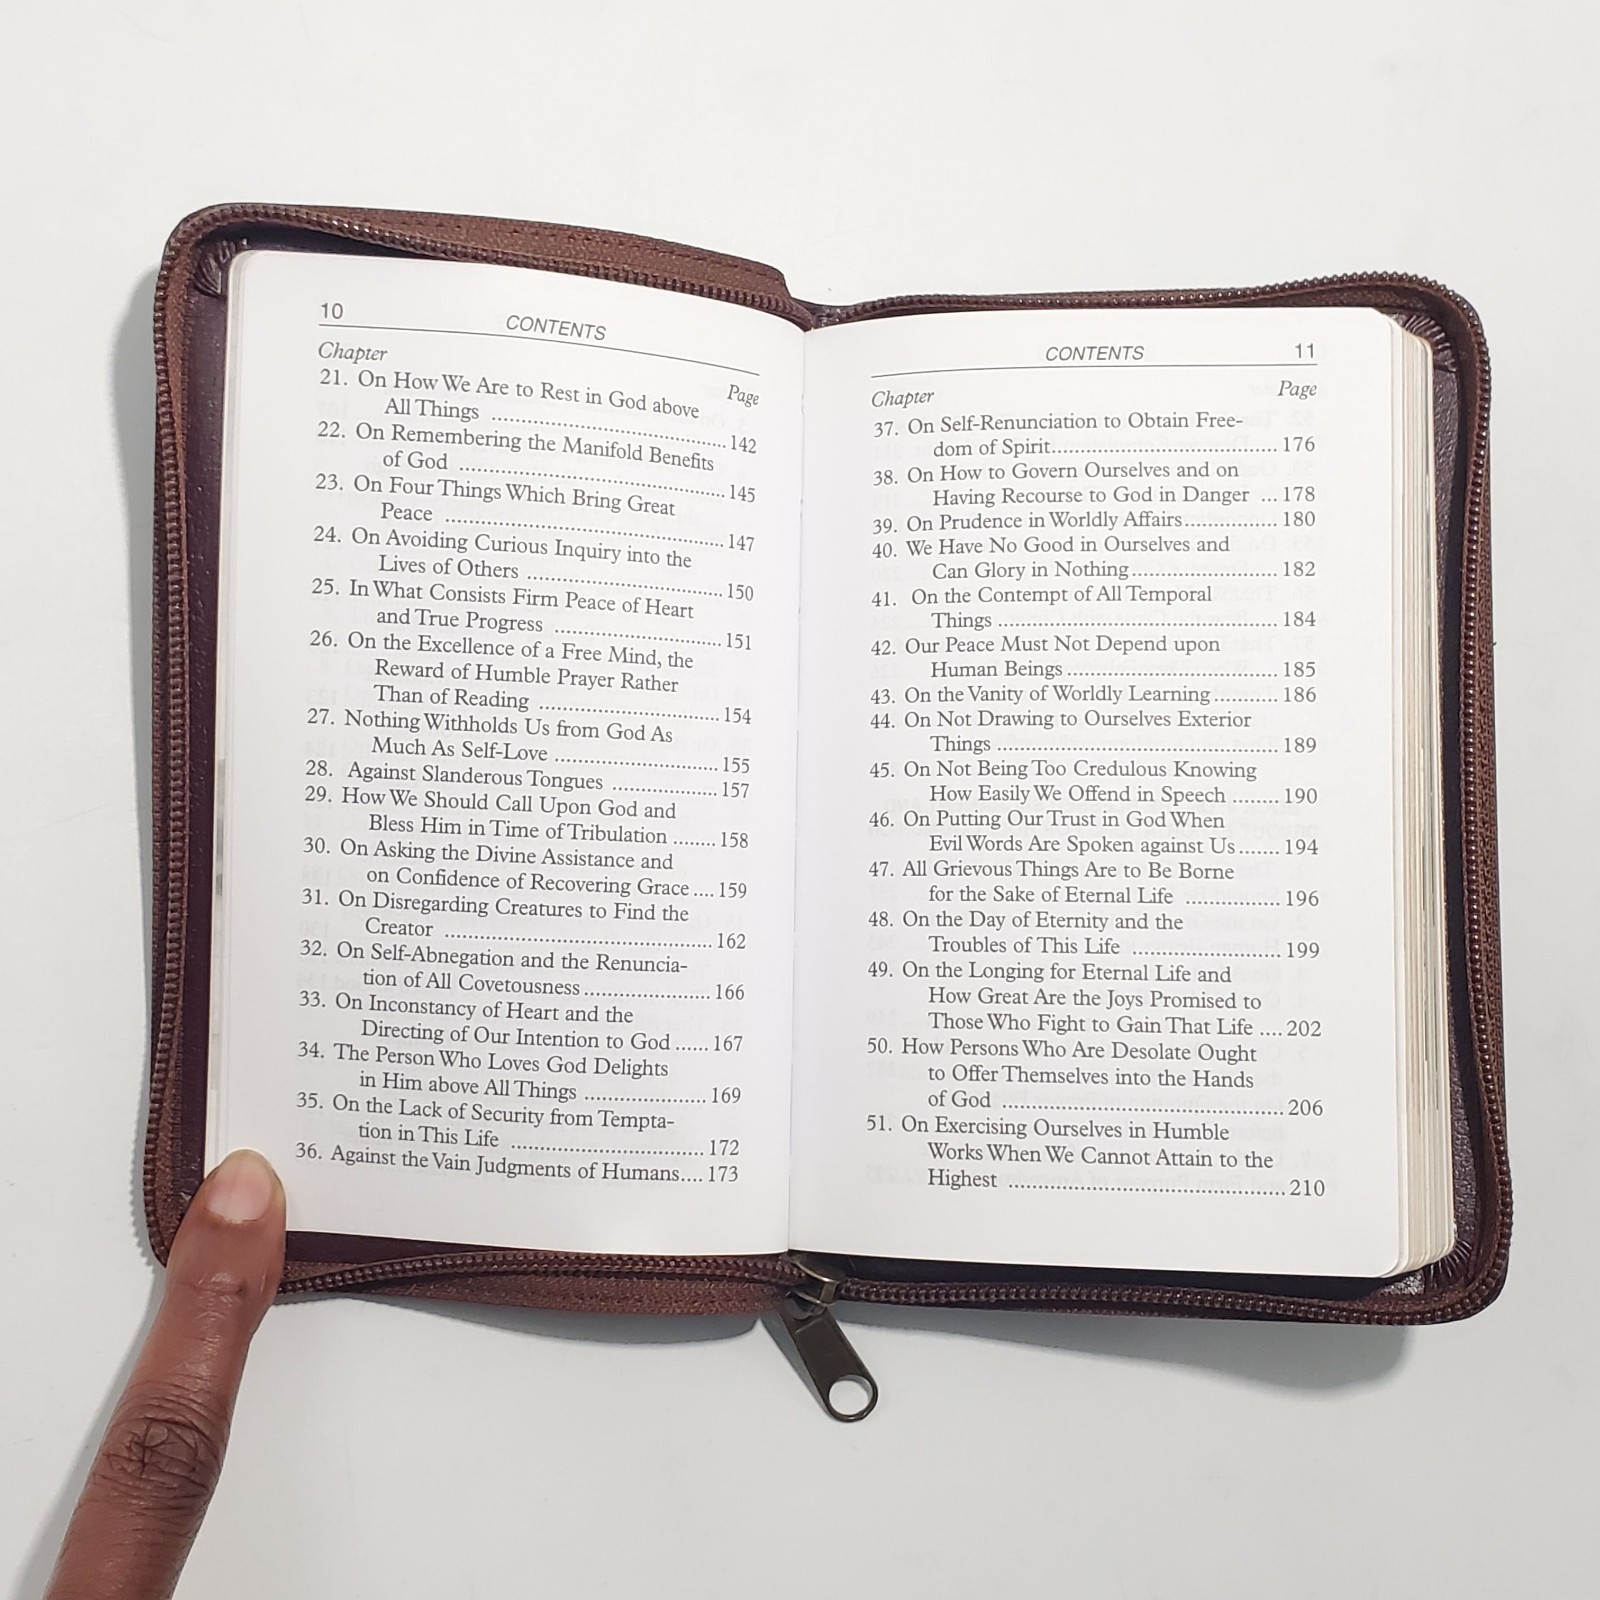 10
CONTENTS
Chapter
Page
21. On How We Are to Rest in God above
All Things ........................................ 142
22. On Remembering the Manifold Benefits
of God ............................................. 145
23. On Four Things Which Bring Great
Peace ............................................... 147
24. On Avoiding Curious Inquiry into the
Lives of Others ................................. 150
25. In What Consists Firm Peace of Heart
and True Progress .............................. 151
26. On the Excellence of a Free Mind, the
Reward of Humble Prayer Rather
Than of Reading ............................... 154
27. Nothing Withholds Us from God As
Much As Self-Love ............................ 155
28. Against Slanderous Tongues ...................... 157
29. How We Should Call Upon God and
Bless Him in Time of Tribulation ........ 158
30. On Asking the Divine Assistance and
on Confidence of Recovering Grace .... 159
31. On Disregarding Creatures to Find the
Creator ............................................. 162
32. On Self-Abnegation and the Renuncia-
tion of All Covetousness ..................... 166
33. On Inconstancy of Heart and the
Directing of Our Intention to God ...... 167
34. The Person Who Loves God Delights
in Him above All Things .................... 169
35. On the Lack of Security from Tempta-
tion in This Life ................................ 172
36. Against the Vain Judgments of Humans.... 173
CONTENTS
11
Chapter
Page
37. On Self-Renunciation to Obtain Free-
dom of Spirit...................................... 176
38. On How to Govern Ourselves and on
Having Recourse to God in Danger ... 178
39. On Prudence in Worldly Affairs................ 180
40. We Have No Good in Ourselves and
Can Glory in Nothing......................... 182
41. On the Contempt of All Temporal
Things .............................................. 184
42. Our Peace Must Not Depend upon
Human Beings.................................... 185
43. On the Vanity of Worldly Learning........... 186
44. On Not Drawing to Ourselves Exterior
Things .............................................. 189
45. On Not Being Too Credulous Knowing
How Easily We Offend in Speech ........ 190
46. On Putting Our Trust in God When
Evil Words Are Spoken against Us....... 194
47. All Grievous Things Are to Be Borne
for the Sake of Eternal Life ................ 196
48. On the Day of Eternity and the
Troubles of This Life ......................... 199
49. On the Longing for Eternal Life and
How Great Are the Joys Promised to
Those Who Fight to Gain That Life .... 202
50. How Persons Who Are Desolate Ought
to Offer Themselves into the Hands
of God .............................................. 206
51. On Exercising Ourselves in Humble
Works When We Cannot Attain to the
Highest ............................................. 210